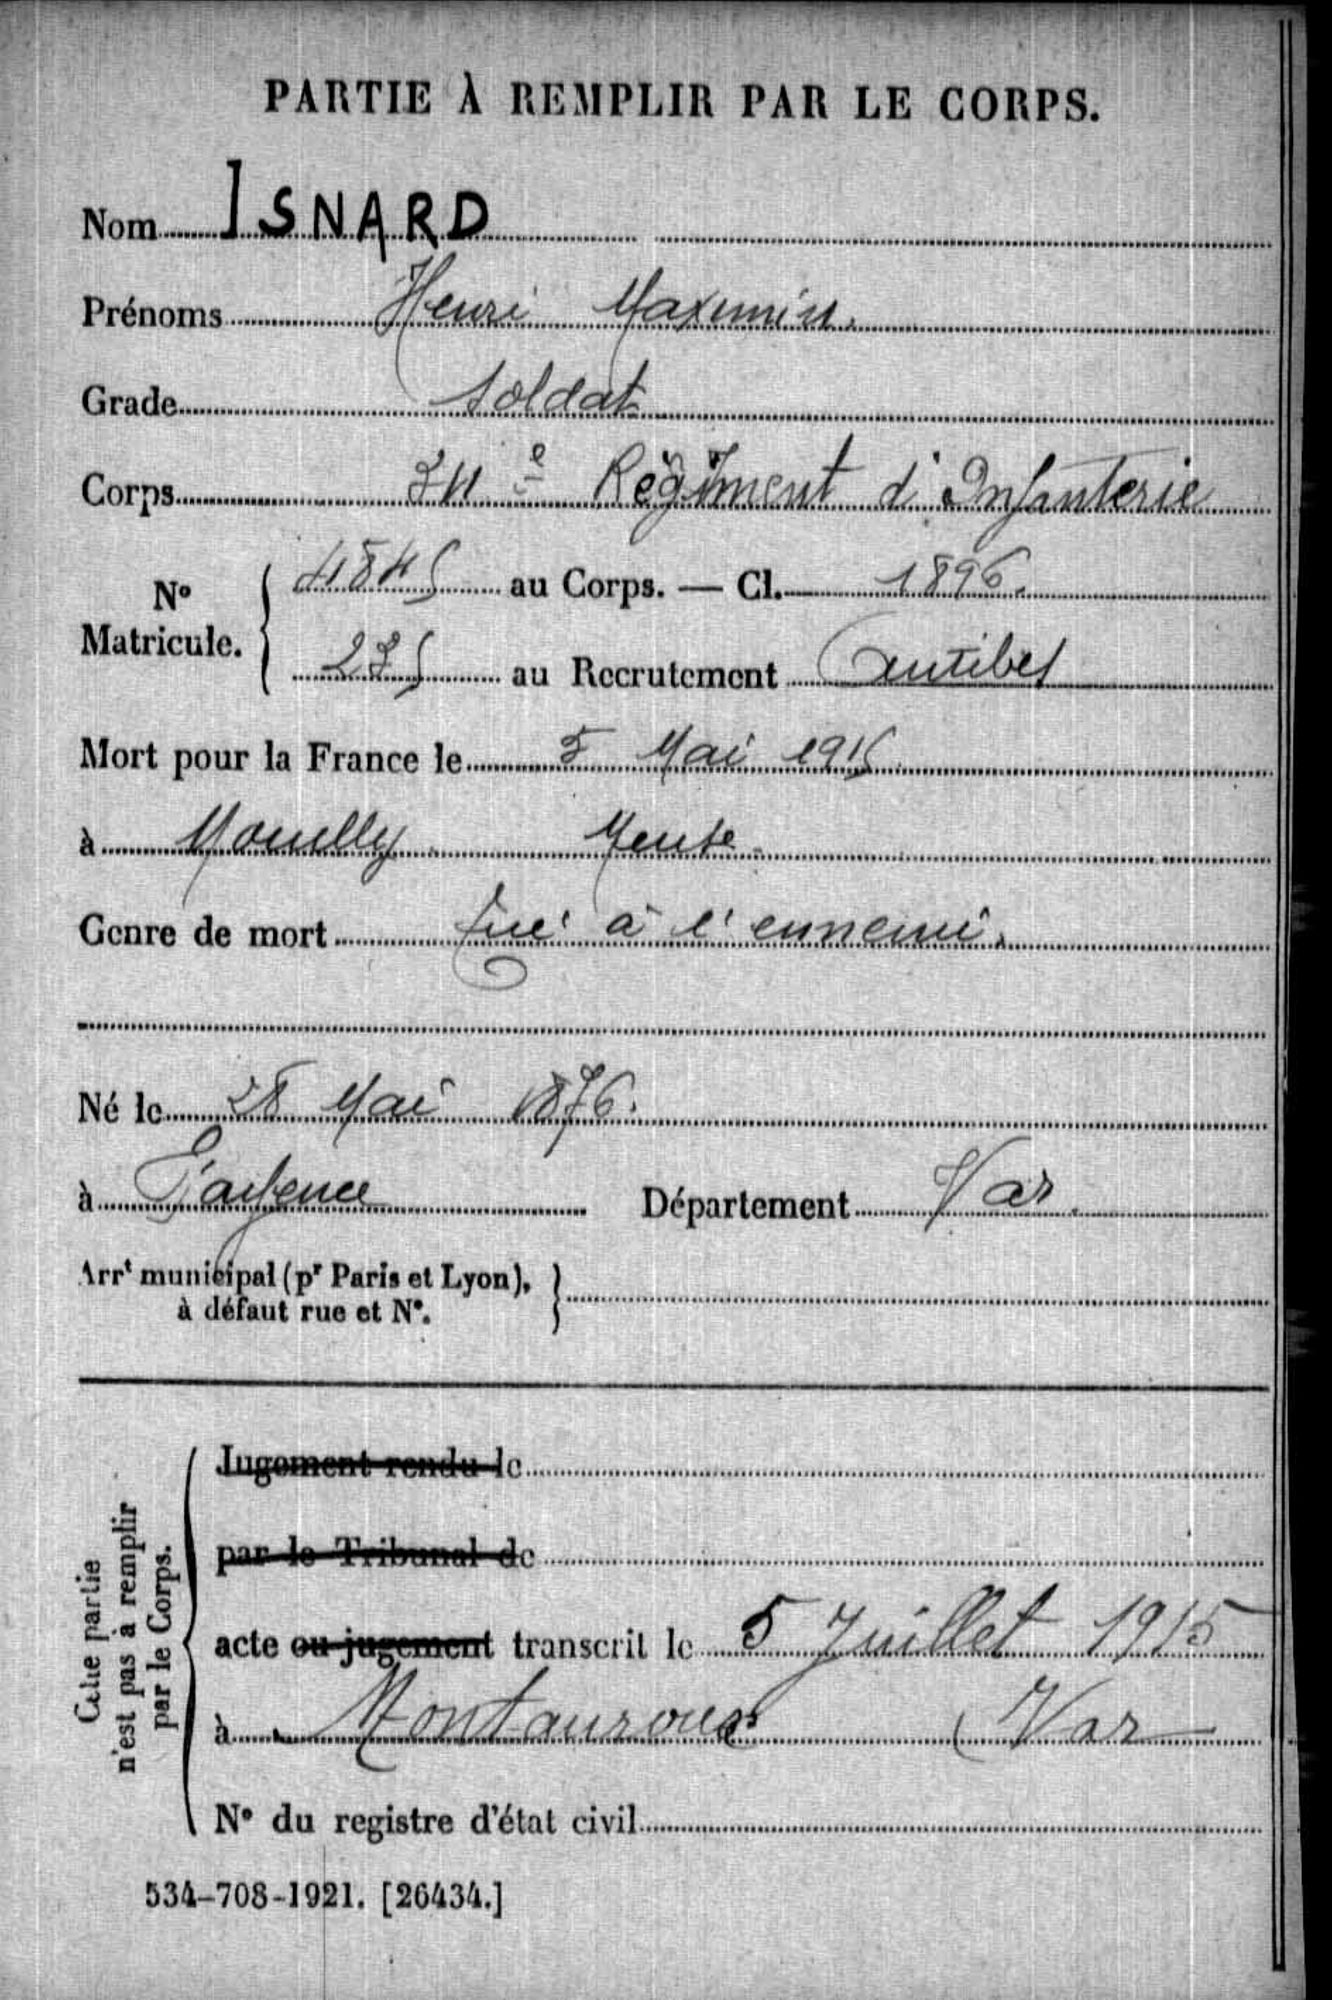 PARTIE À REMPLIR PAR LE CORPS.
Nom ISNARD
Prénoms Henri Maximin.
Grade Soldat
Corps e Régiment d'Infanterie
No Matricule. au Corps. — Cl. 1896.
235 au Recrutement Antibes
Mort pour la France le 5 Mai 1915
à Mouilly Meuse
Genre de mort Tué à l'ennemi.
Né le 28 Mai 1876.
à Fayence Département Var.
Arrt municipal (pr Paris et Lyon),
à défaut rue et No.
Cette partie
n'est pas à remplir
par le Corps.
Jugement rendu le
par le Tribunal de
acte ou jugement transcrit le 5 Juillet 1915
à Montauroux (Var
No du registre d'état civil
534-708-1921. [26434.]